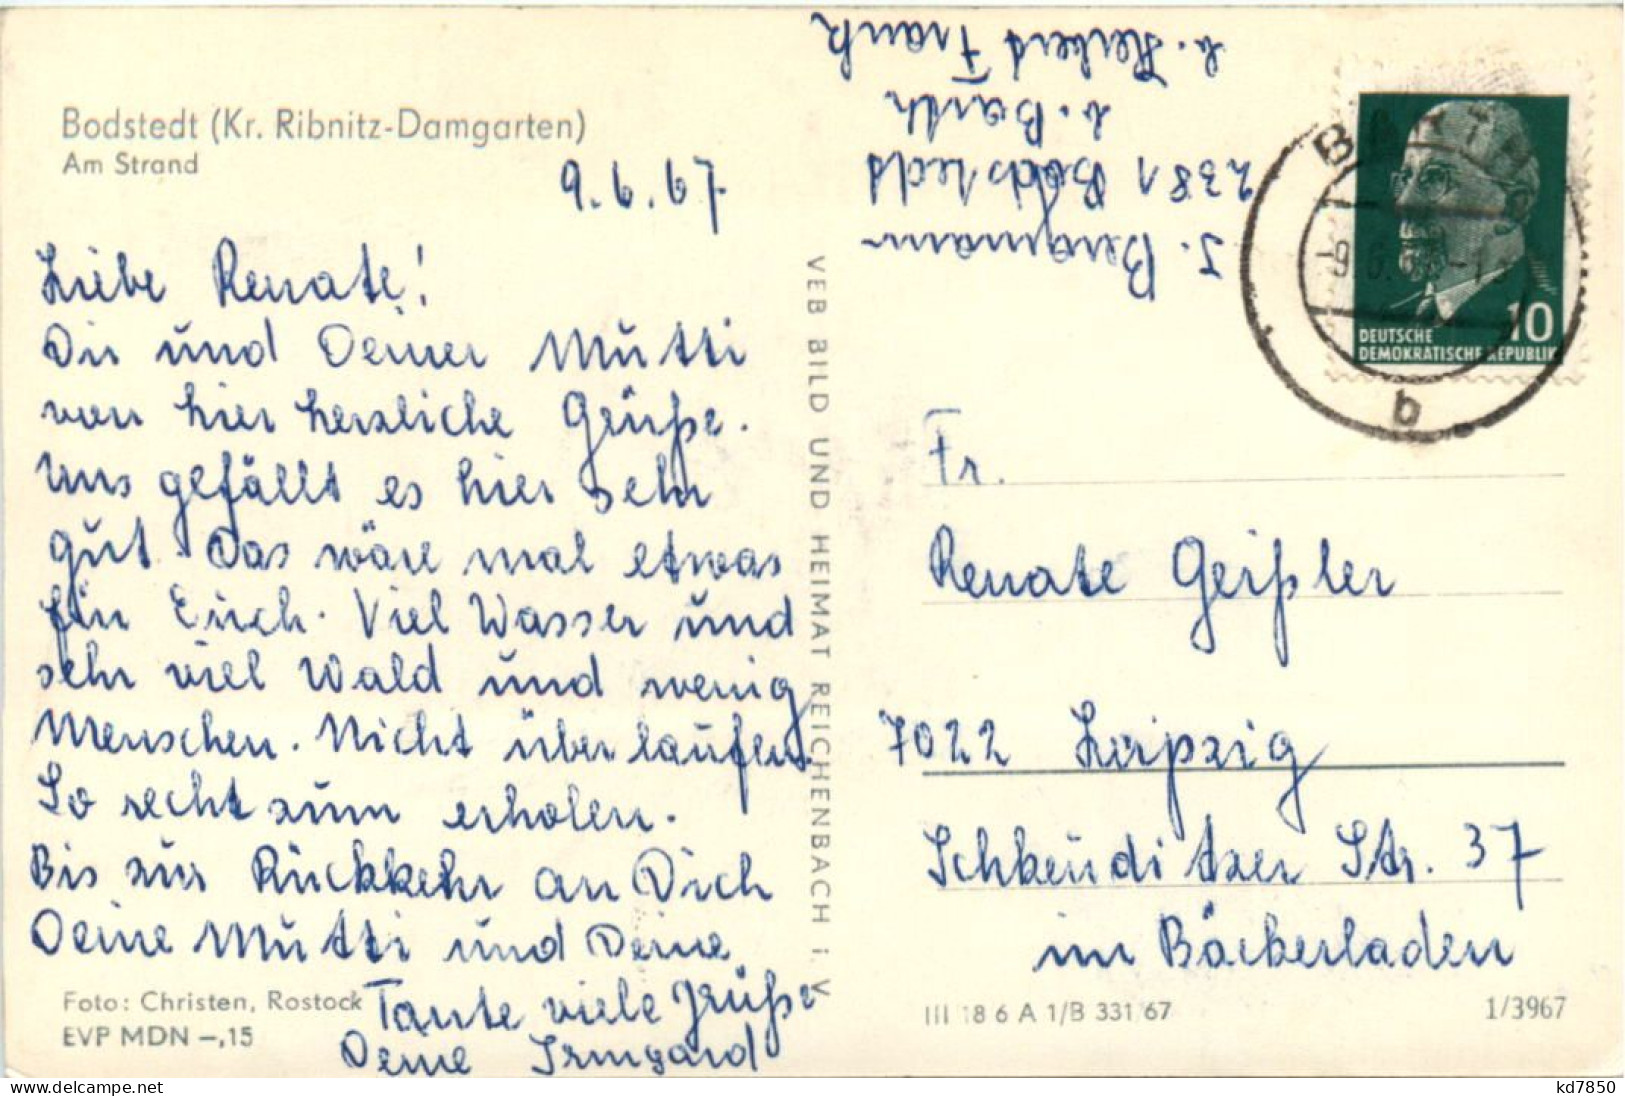 Bodstedt (Kr. Ribnitz-Damgarten)
Am Strand
9.6.67
Liebe Renate!
Dir und Deiner Mutti
von hier herzliche Grüße.
Uns gefällt es hier sehr
gut. Das wäre mal etwas
für Euch. Viel Wasser und
sehr viel Wald und wenig
Menschen. Nicht überlaufen.
So recht zum erholen.
Bis zur Rückkehr an Dich
Deine Mutti und Deine
Tante viele Grüße
Deine Irmgard
Foto: Christen, Rostock
EVP MDN –,15
VEB BILD UND HEIMAT REICHENBACH i. V.
J. Bergmann
2381 Bodstedt
b. Barth
b. Herbert Frank
BARTH
9.6.67
b
10
DEUTSCHE
DEMOKRATISCHE REPUBLIK
Fr.
Renate Geißler
7022 Leipzig
Schkeuditzer Str. 37
im Bäckerladen
III 18 6 A 1/B 331/67
1/3967
www.delcampe.net
kd7850